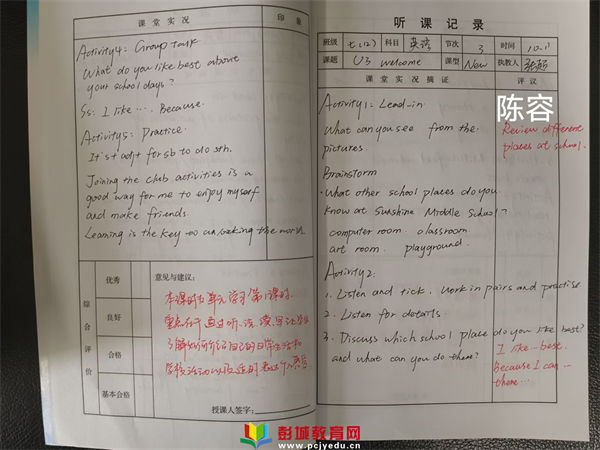 课堂实况 印象
Activity4: Group task
What do you like best about
your school days?
Ss: I like ... Because.
Activity5: Practice.
It's + adj + for sb to do sth.
Joining the club activities is a
good way for me to enjoy myself
and make friends
Learning is the key to unlocking the world
综合评价
优秀
良好
合格
基本合格
意见与建议:
本课时为单元学习第1课时.
重点在于通过听、说、读、写让学生
了解如何介绍自己的日常生活和
学校活动以及适时表达个人感受
授课人签字:
听课记录
班级 七(12) 科目 英语 节次 3 时间 10.11
课题 U3 welcome 课型 New 执教人
课堂实况摘证 评议
陈容
Activity1: Lead-in
What can you see from the
pictures.
Review different
places at school.
Brainstorm
·What other school places do you
know at Sunshine Middle School?
computer room. classroom
art room. playground.
Activity2:
1. Listen and tick. Work in pairs and practise
2. Listen for details.
3. Discuss which school place do you like best?
and what can you do there?
I like ... best.
Because I can ...
there...
彭城教育网
www.pcjyedu.cn